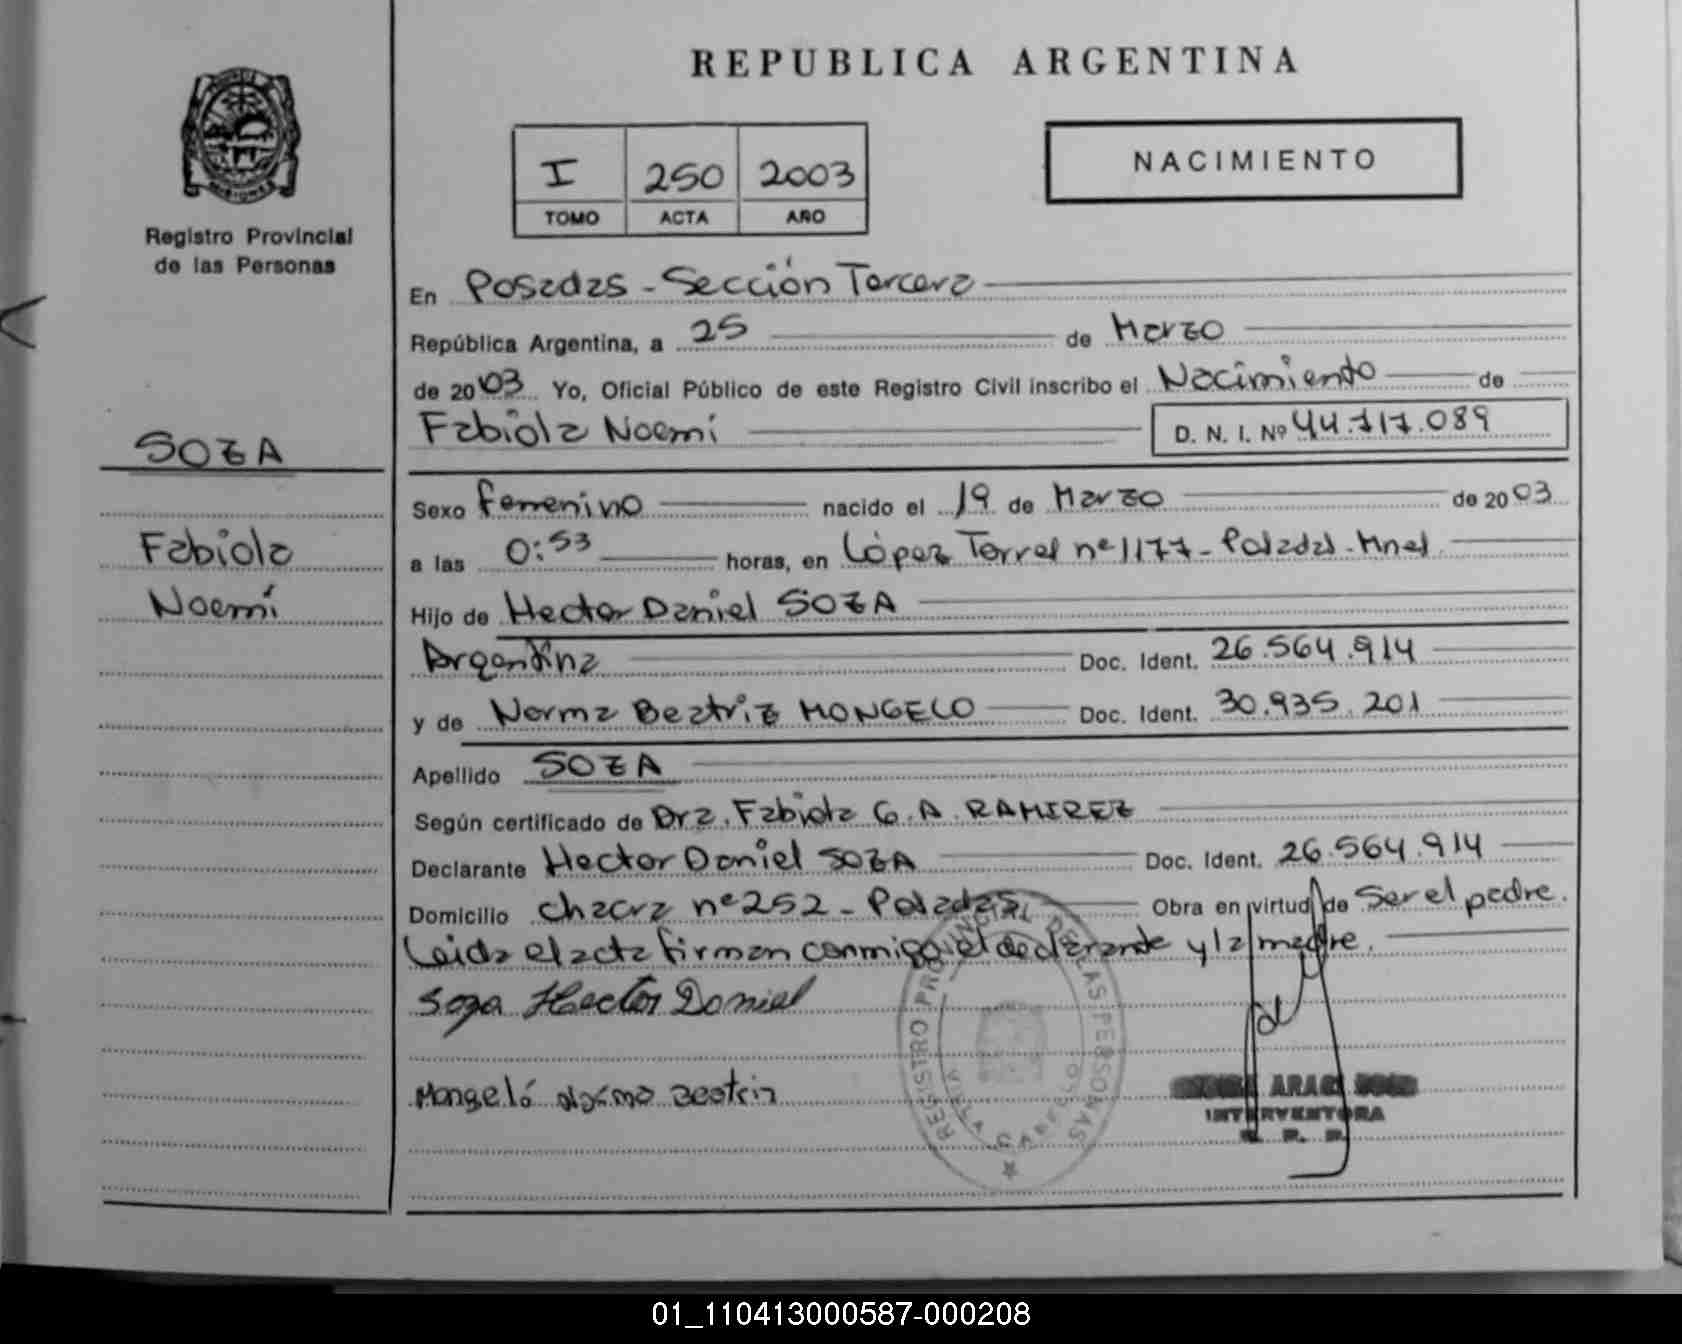 REPUBLICA ARGENTINA
MISIONES
Registro Provincial
de las Personas
I 250 2003
TOMO ACTA AÑO
NACIMIENTO
SOZA
Fabiola
Noemí
En Posadas - Sección Tercera
República Argentina, a 25 de Marzo
de 2003 Yo, Oficial Público de este Registro Civil inscribo el Nacimiento de
Fabiola Noemí D. N. I. Nº 44.717.089
Sexo Femenino nacido el 19 de Marzo de 2003
a las 0:53 horas, en López Torres nº 1177 - Posadas - Mnes.
Hijo de Hector Daniel SOZA
Argentina Doc. Ident. 26.564.914
y de Norma Beatriz MONGELO Doc. Ident. 30.935.201
Apellido SOZA
Según certificado de Dra. Fabiola G. A. RAMIREZ
Declarante Hector Daniel SOZA Doc. Ident. 26.564.914
Domicilio chacra nº 252 - Posadas Obra en virtud de Ser el padre.
Leida el acta firman conmigo el declarante y la madre.
Soza Hector Daniel
Mongeló Norma Beatriz
REGISTRO PROVINCIAL DE LAS PERSONAS
INTERVENTORA
01_110413000587-000208